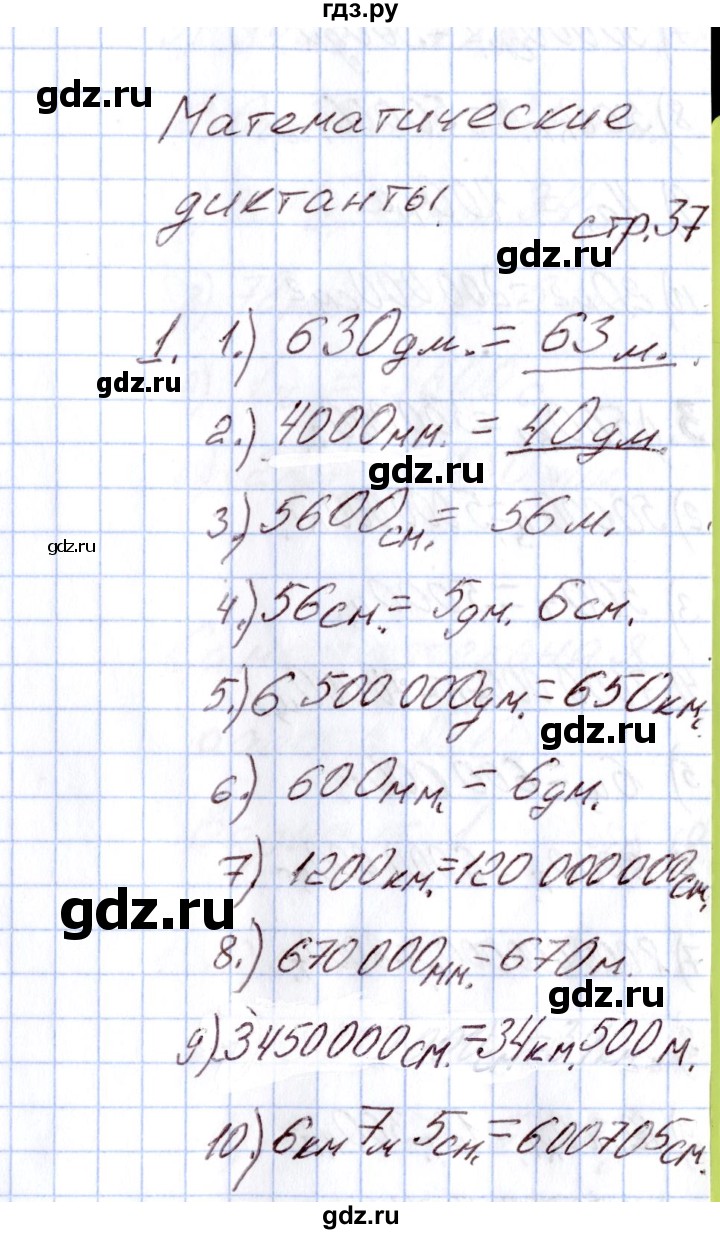 гдз.ру
gdz.ru
Математические
диктанты.
стр.37
gdz.ru
1. 1.) 630дм. = 63м.
gdz.ru
2.) 4000мм. = 40дм.
gdz.ru
3.) 5600см. = 56м.
gdz.ru
4.) 56см. = 5дм. 6см.
5.) 6 500 000дм. = 650км.
gdz.ru
6.) 600мм. = 6дм.
7) 1200км. = 120 000 000см.
gdz.ru
8.) 670 000мм. = 670м.
gdz.ru
9.) 3450000см. = 34км. 500м.
10.) 6км 7м 5см. = 600705см.
gdz.ru